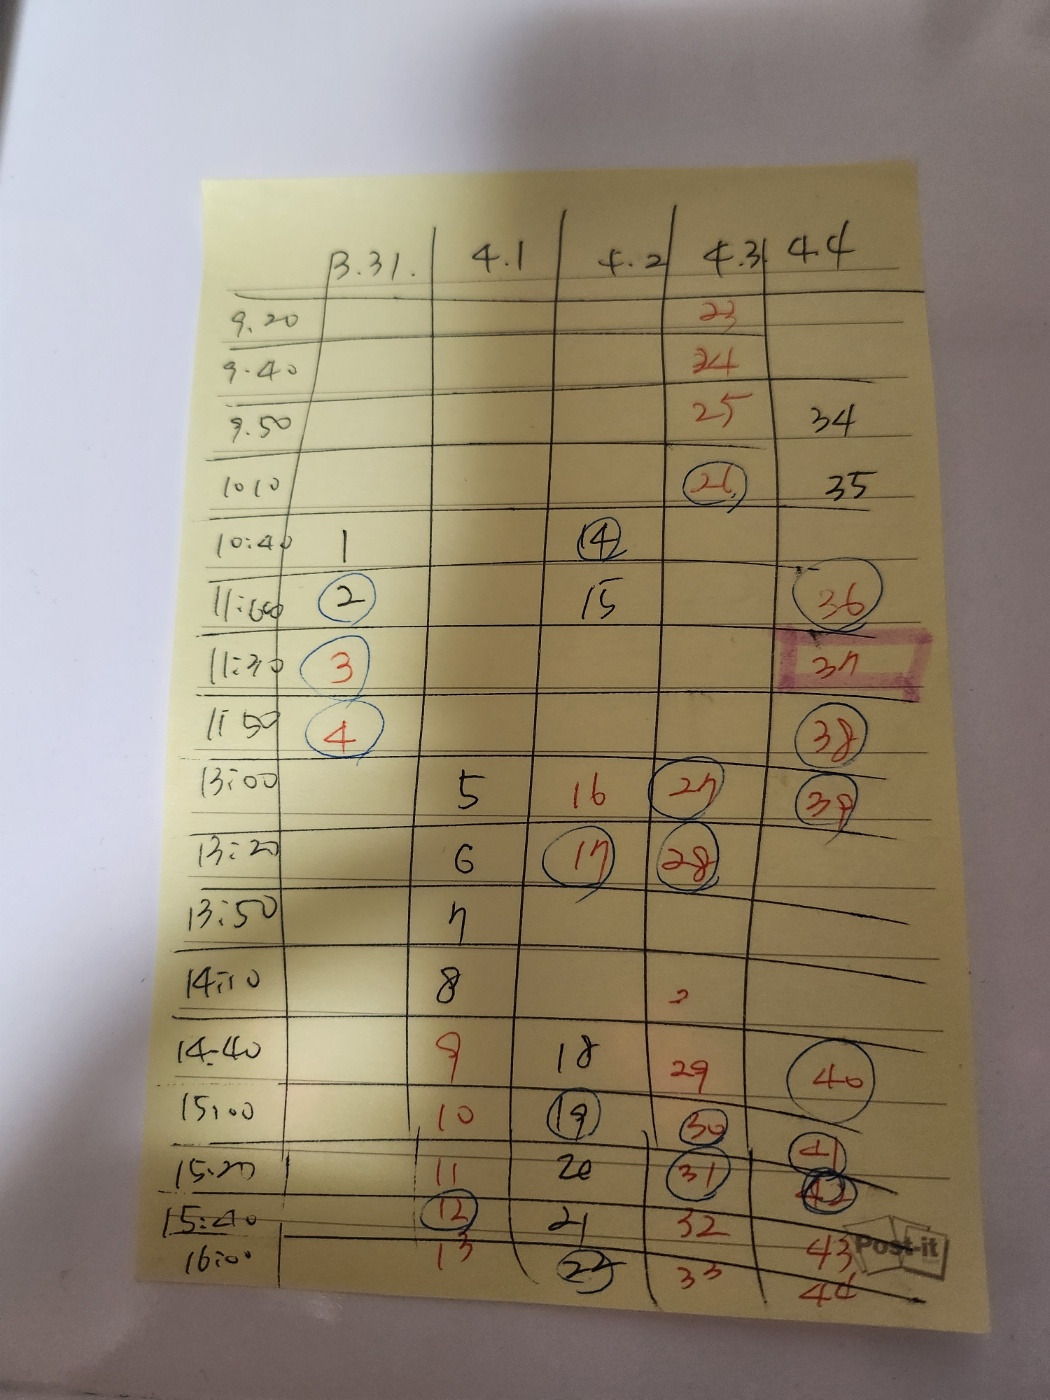 3.31. 4.1 4.2 4.3 4.4
9.20 23
9.40 24
9.50 25 34
1010 26 35
10:40 1 14
11:00 2 15 36
11:30 3 37
11:50 4 38
13:00 5 16 27 39
13:20 6 17 28
13:50 7
14:10 8 2
14-40 9 18 29 40
15:00 10 19 30 41
15.20 11 20 31 42
15:40 12 21 32 43
16:00 13 22 33 44
Post-it